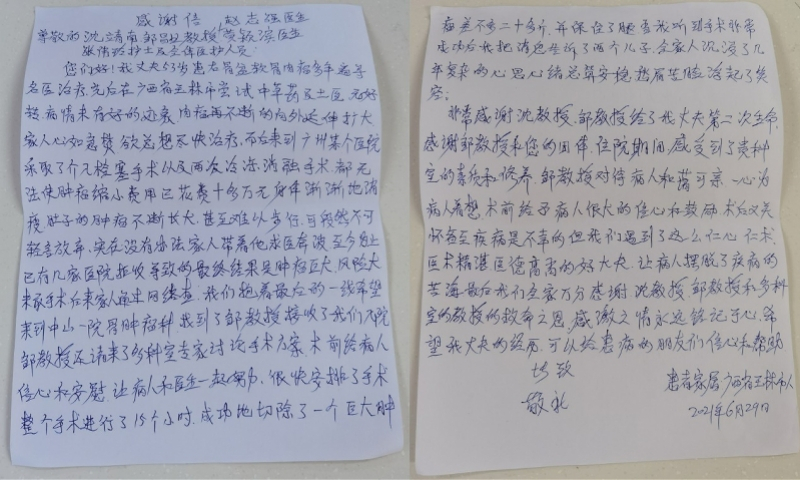 感谢信 赵志强医生
尊敬的沈靖南 邹昌业教授 黄颖滨医生
张伟玲护士及全体医护人员:
您们好!我丈夫57岁患右骨盆软骨肉瘤多年寻
名医治疗,先后在广西省玉林市尝试中草药及土医无好
转病情未有好的迹象,肉瘤再不断的向外延伸扩大
家人心如急焚,欲总想尽快治疗,而后来到广州某个医院
采取了介入栓塞手术以及两次冷冻消融手术,都无
法使肿瘤缩小费用已花费十多万元身体渐渐地消
瘦肚子的肿瘤不断长大,甚至难以步行,可我仍不可
轻言放弃,实在没有办法家人带着他求医奔波至今为止
已有几家医院拒收导致的最终结果是肿瘤巨大,风险大
来家人再上网络查,我们抱着最后的一线希望
来到中山一院骨肿瘤科找到了邹教授接收了我们入院
邹教授还请来了多科室专家讨论手术方案,术前给病人
信心和安慰,让病人和医生一起努力,很快安排了手术
整个手术进行了15个小时,成功地切除了一个巨大肿
瘤差不多二十多斤,并保住了腿当我听到手术非常
成功后我把消息告诉了两个儿子,全家人沉浸了几
年复杂的心思心绪总算安稳
容:
非常感谢沈教授,邹教授给了我丈夫第二次生命,
感谢邹教授和您的团体,住院期间,感受到了贵科
室的素质和修养,邹教授对待病人和蔼可亲一心为
病人着想,术前给予病人很大的信心和鼓励,术后又关
怀备至疾病是不幸的但我们遇到了这么仁心仁术,
医术精湛医德高尚的好大夫,让病人摆脱了疾病的
苦海最后我们全家万分感谢沈教授,邹教授和多科
室的教授的救命之恩,感激之情永远铭记于心,希
望我丈夫的经历,可以给患病的朋友们信心和帮助
此致
敬礼
患者家属广西省玉林市人
2021年6月29日